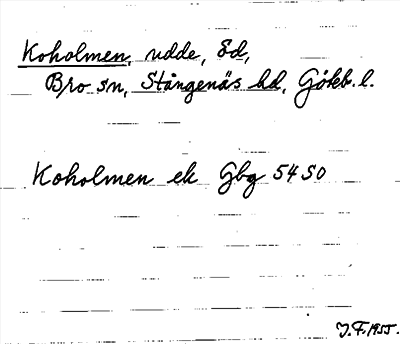 Koholmen, udde, Sd,
Bro sn, Stångenäs hd, Göteb. l.
Koholmen ek Gbg 54 SO
J. F. 1955.